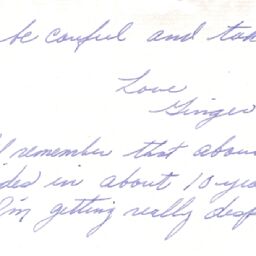 be couful and tak
Love
Ginger
I remember that abou
des in about 10 yea
I'm getting really desp